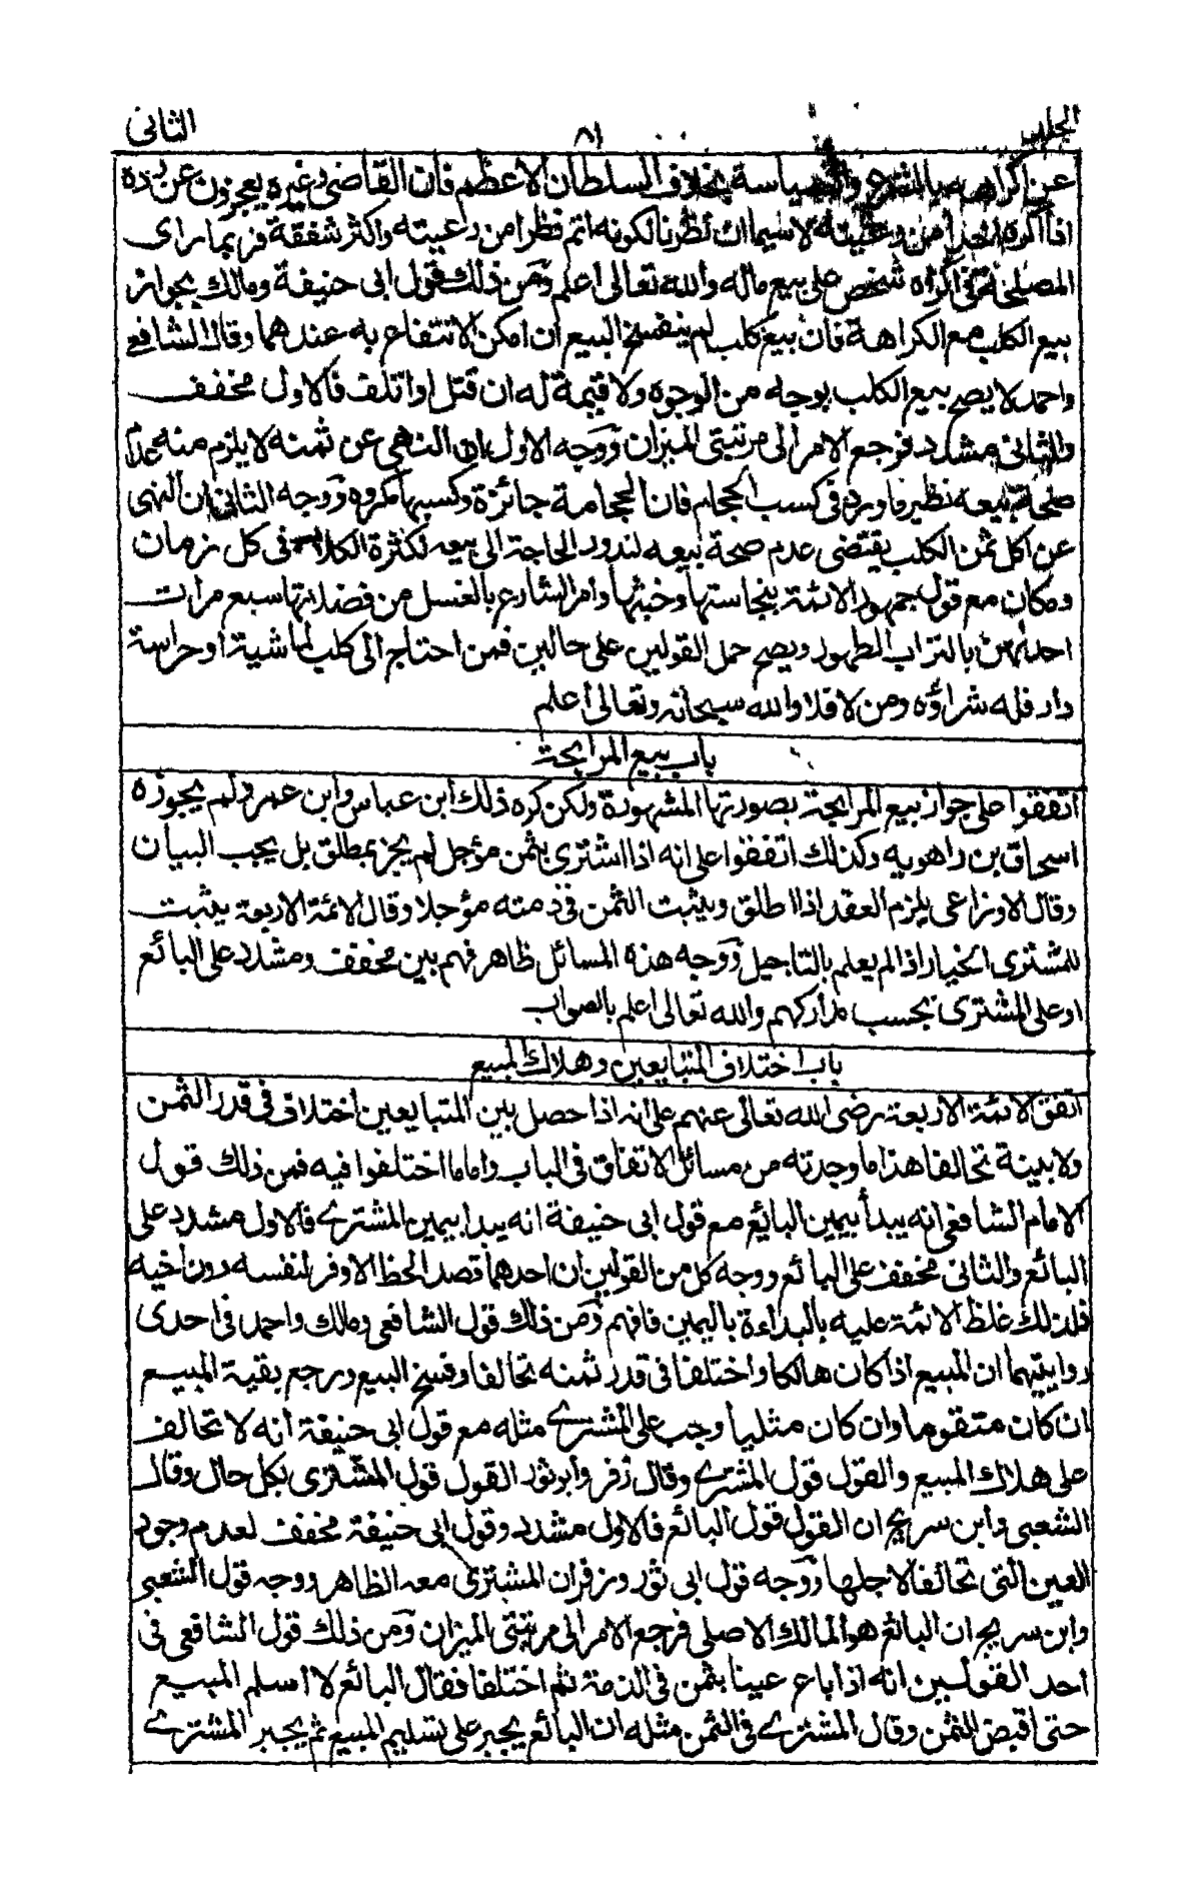 الجلد ٨١ الثاني
عن اكراهه بالشرع والسياسة بخلاف السلطان الاعظم فان القاضى وغيره يعجزون عن رده
اذا اكره احدا من رعيته لاسيما ان نظرنا لكونه اتم نظرا من رعيته واكثر شفقة فربما راى
المصلحة فى اكراه شخص على بيع ماله والله تعالى اعلم ومن ذلك قول ابى حنيفة ومالك بجواز
بيع الكلب مع الكراهة فان بيع كلب لم ينفسخ البيع ان امكن الانتفاع به عندهما وقال الشافعى
واحمد لا يصح بيع الكلب بوجه من الوجوه ولا قيمة له ان قتل او اتلف فالاول مخفف
والثانى مشدد فرجع الامر الى مرتبتى الميزان ووجه الاول ان النهى عن ثمنه لا يلزم منه عدم
صحة بيعه نظير ما ورد فى كسب الحجام فان الحجامة جائزة وكسبها مكروه ووجه الثانى ان النهى
عن اكل ثمن الكلب يقتضى عدم صحة بيعه لندور الحاجة الى بيعه لكثرة الكلاب فى كل زمان
ومكان مع قول جمهور الائمة بنجاستها وخبثها وامر الشارع بالغسل من فضلاتها سبع مرات
احداهن بالتراب الطهور ويصح حمل القولين على حالين فمن احتاج الى كلب لماشية او حراسة
دار فله شراؤه ومن لا فلا والله سبحانه وتعالى اعلم
باب بيع المرابحة
اتفقوا على جواز بيع المرابحة بصورتها المشهورة ولكن كره ذلك ابن عباس وابن عمر ولم يجوزه
اسحاق بن راهويه وكذلك اتفقوا على انه اذا اشترى بثمن مؤجل لم يجز بمطلق بل يجب البيان
وقال الاوزاعى يلزم العقد اذا اطلق ويثبت الثمن فى ذمته مؤجلا وقال الائمة الاربعة يثبت
للمشترى الخيار اذا لم يعلم بالتاجيل ووجه هذه المسائل ظاهر فهم بين مخفف ومشدد على البائع
او على المشترى بحسب مداركهم والله تعالى اعلم بالصواب
باب اختلاف المتبايعين وهلاك المبيع
اتفق الائمة الاربعة رضى الله تعالى عنهم على انه اذا حصل بين المتبايعين اختلاف فى قدر الثمن
ولا بينة تحالفا هذا ما وجدته من مسائل الاتفاق فى الباب واما ما اختلفوا فيه فمن ذلك قول
الامام الشافعى انه يبدأ بيمين البائع مع قول ابى حنيفة انه يبدا بيمين المشترى فالاول مشدد على
البائع والثانى مخفف على البائع ووجه كل من القولين ان احدهما قصد الحظ الاوفر لنفسه دون اخيه
فلذلك غلظ الائمة عليه بالبداءة باليمين فافهم ومن ذلك قول الشافعى ومالك واحمد فى احدى
روايتيهما ان المبيع اذا كان هالكا واختلفا فى قدر ثمنه تحالفا وفسخ البيع ورجع بقية المبيع
ان كان متقوما وان كان مثليا وجب على المشترى مثله مع قول ابى حنيفة انه لا تحالف
على هلاك المبيع والقول قول المشترى وقال زفر وابو ثور القول قول المشترى بكل حال وقال
الشعبى وابن سريج ان القول قول البائع فالاول مشدد وقول ابى حنيفة مخفف لعدم وجود
العين التى تحالفا لاجلها ووجه قول ابى ثور وزفر ان المشترى معه الظاهر ووجه قول الشعبى
وابن سريج ان البائع هو المالك الاصلى فرجع الامر الى مرتبتى الميزان ومن ذلك قول الشافعى فى
احد القولين انه اذا باع عينا بثمن فى الذمة ثم اختلفا فقال البائع لا اسلم المبيع
حتى اقبض الثمن وقال المشترى فى الثمن مثله ان البائع يجبر على تسليم المبيع ثم يجبر المشترى